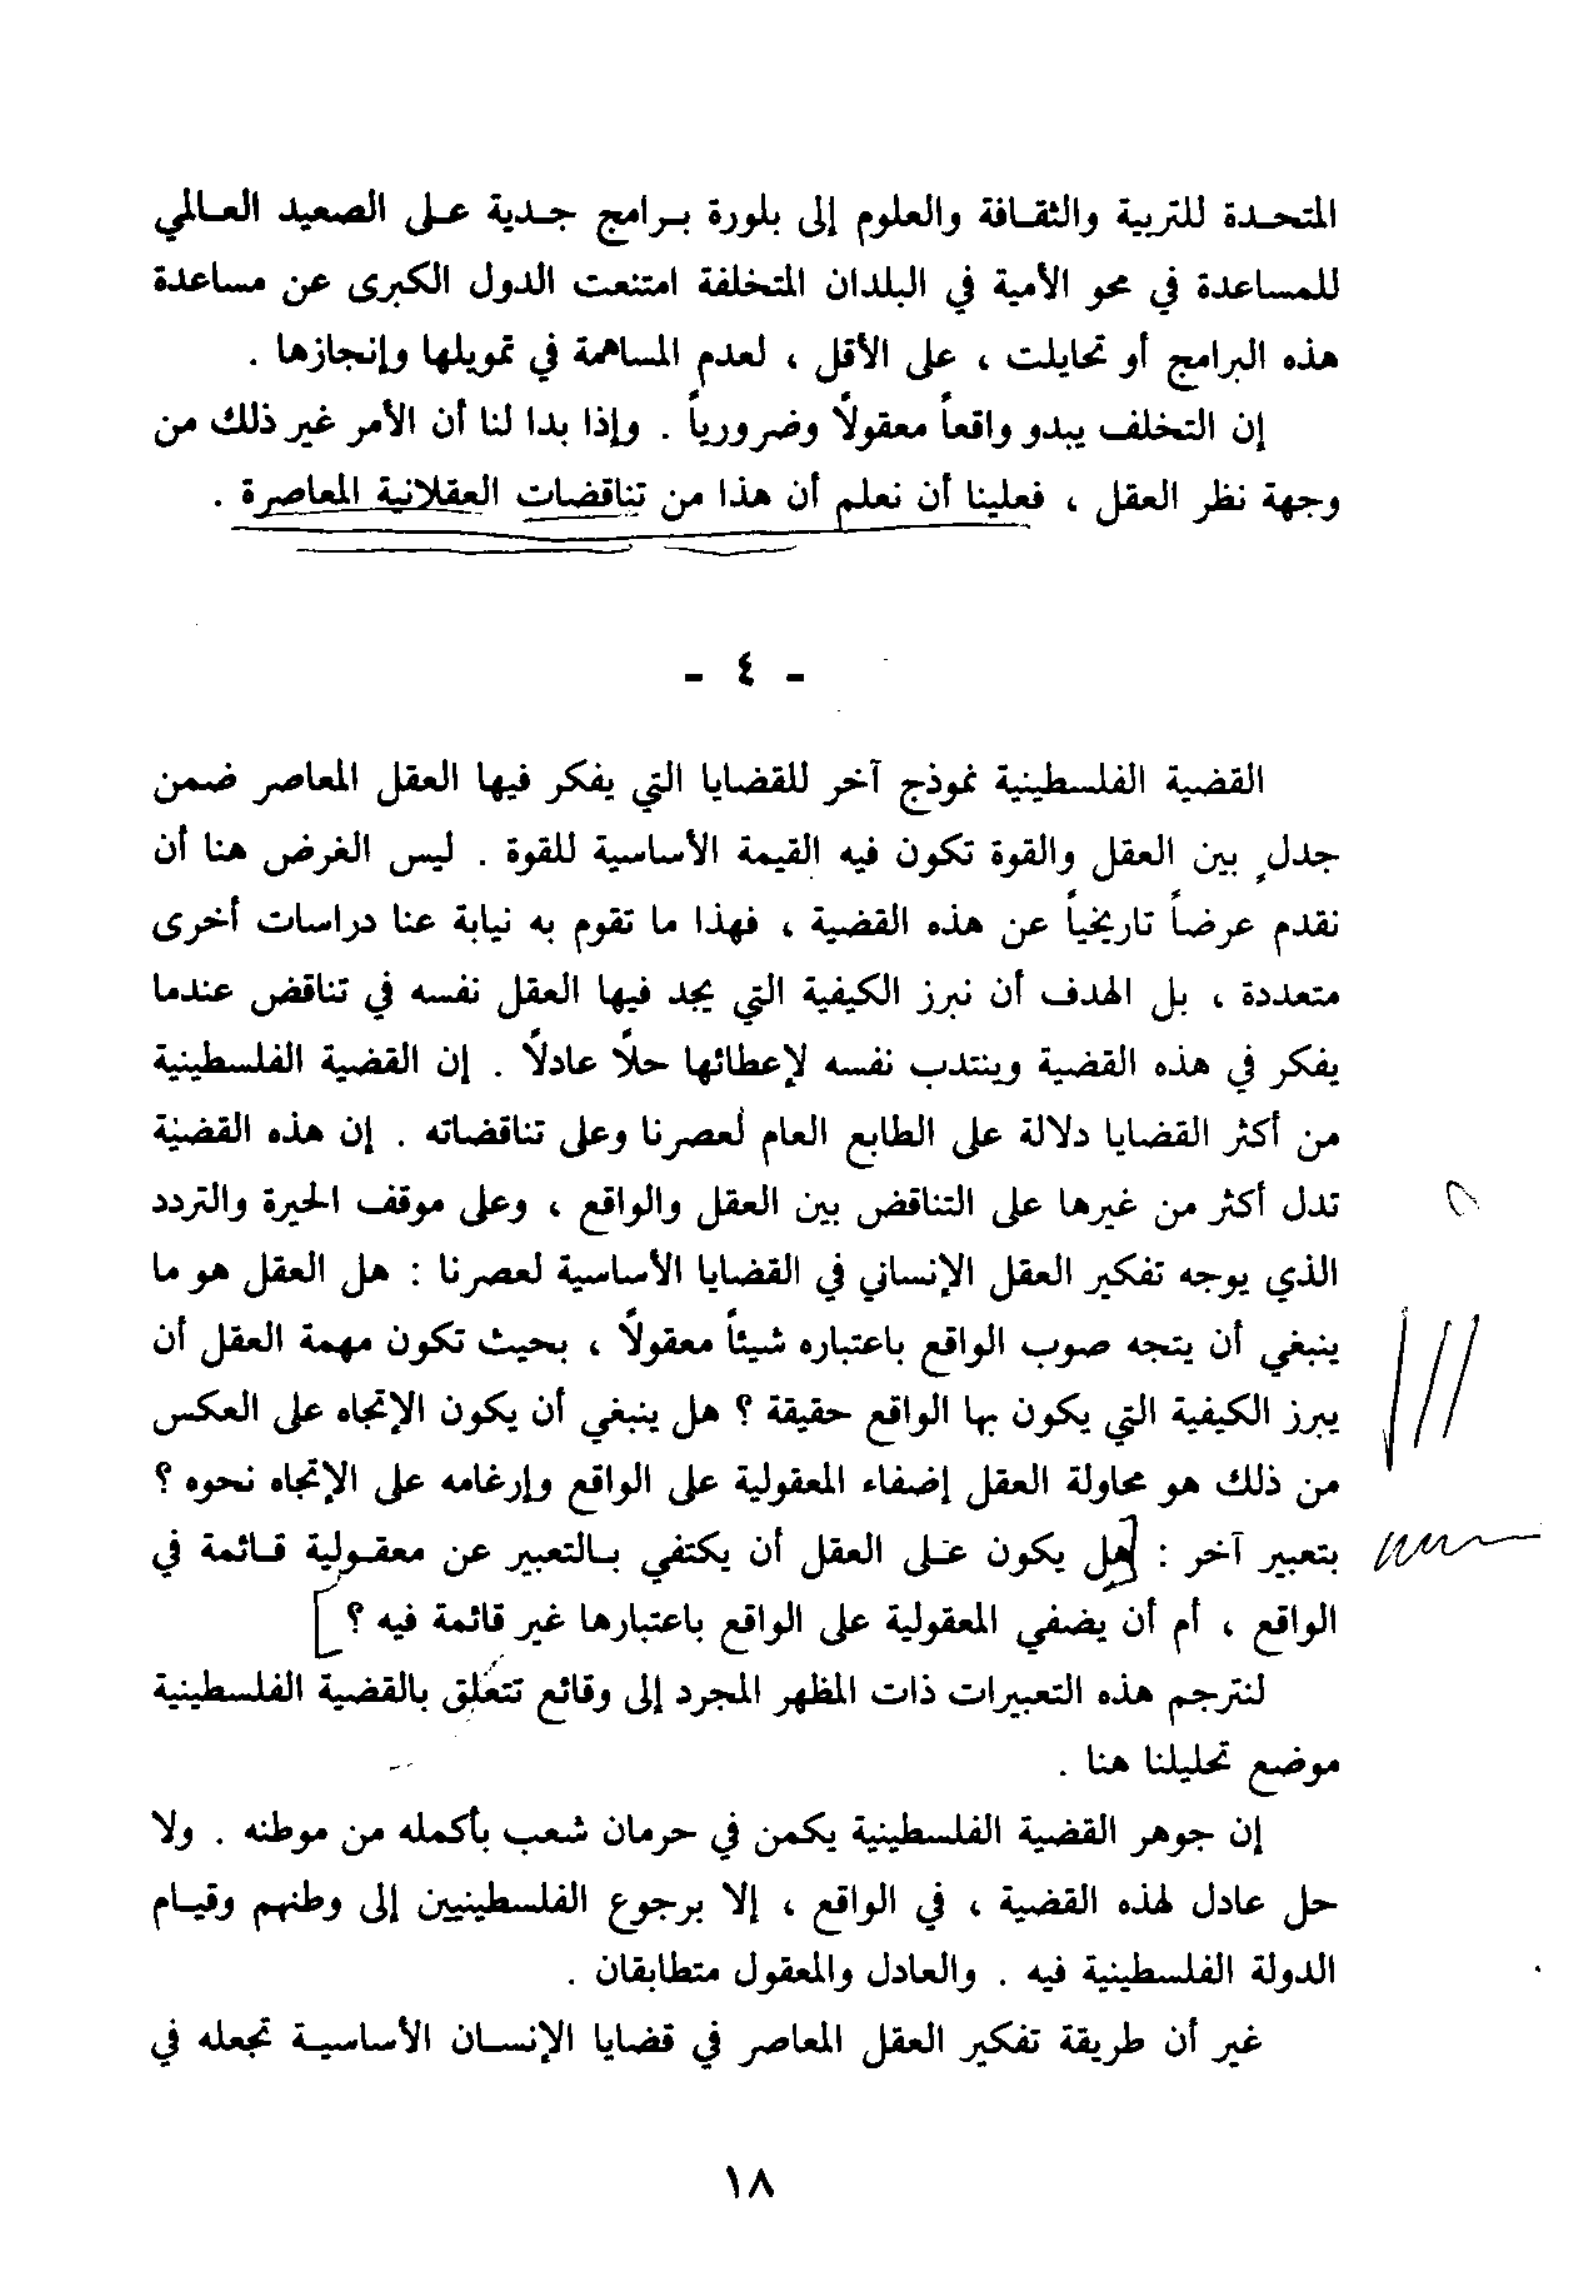 المتحدة للتربية والثقافة والعلوم إلى بلورة برامج جدية على الصعيد العالمي
للمساعدة في محو الأمية في البلدان المتخلفة امتنعت الدول الكبرى عن مساعدة
هذه البرامج أو تحايلت ، على الأقل ، لعدم المساهمة في تمويلها وإنجازها .
إن التخلف يبدو واقعاً معقولاً وضرورياً . وإذا بدا لنا أن الأمر غير ذلك من
وجهة نظر العقل ، فعلينا أن نعلم أن هذا من تناقضات العقلانية المعاصرة .
- ٤ -
القضية الفلسطينية نموذج آخر للقضايا التي يفكر فيها العقل المعاصر ضمن
جدلٍ بين العقل والقوة تكون فيه القيمة الأساسية للقوة . ليس الغرض هنا أن
نقدم عرضاً تاريخياً عن هذه القضية ، فهذا ما تقوم به نيابة عنا دراسات أخرى
متعددة ، بل الهدف أن نبرز الكيفية التي يجد فيها العقل نفسه في تناقض عندما
يفكر في هذه القضية وينتدب نفسه لإعطائها حلاً عادلاً . إن القضية الفلسطينية
من أكثر القضايا دلالة على الطابع العام لعصرنا وعلى تناقضاته . إن هذه القضية
تدل أكثر من غيرها على التناقض بين العقل والواقع ، وعلى موقف الحيرة والتردد
الذي يوجه تفكير العقل الإنساني في القضايا الأساسية لعصرنا : هل العقل هو ما
ينبغي أن يتجه صوب الواقع باعتباره شيئاً معقولاً ، بحيث تكون مهمة العقل أن
يبرز الكيفية التي يكون بها الواقع حقيقة ؟ هل ينبغي أن يكون الإتجاه على العكس
من ذلك هو محاولة العقل إضفاء المعقولية على الواقع وإرغامه على الإتجاه نحوه ؟
بتعبير آخر : [هل يكون على العقل أن يكتفي بالتعبير عن معقولية قائمة في
الواقع ، أم أن يضفي المعقولية على الواقع باعتبارها غير قائمة فيه ؟]
لنترجم هذه التعبيرات ذات المظهر المجرد إلى وقائع تتعلق بالقضية الفلسطينية
موضع تحليلنا هنا .
إن جوهر القضية الفلسطينية يكمن في حرمان شعب بأكمله من موطنه . ولا
حل عادل لهذه القضية ، في الواقع ، إلا برجوع الفلسطينيين إلى وطنهم وقيام
الدولة الفلسطينية فيه . والعادل والمعقول متطابقان .
غير أن طريقة تفكير العقل المعاصر في قضايا الإنسان الأساسية تجعله في
١٨